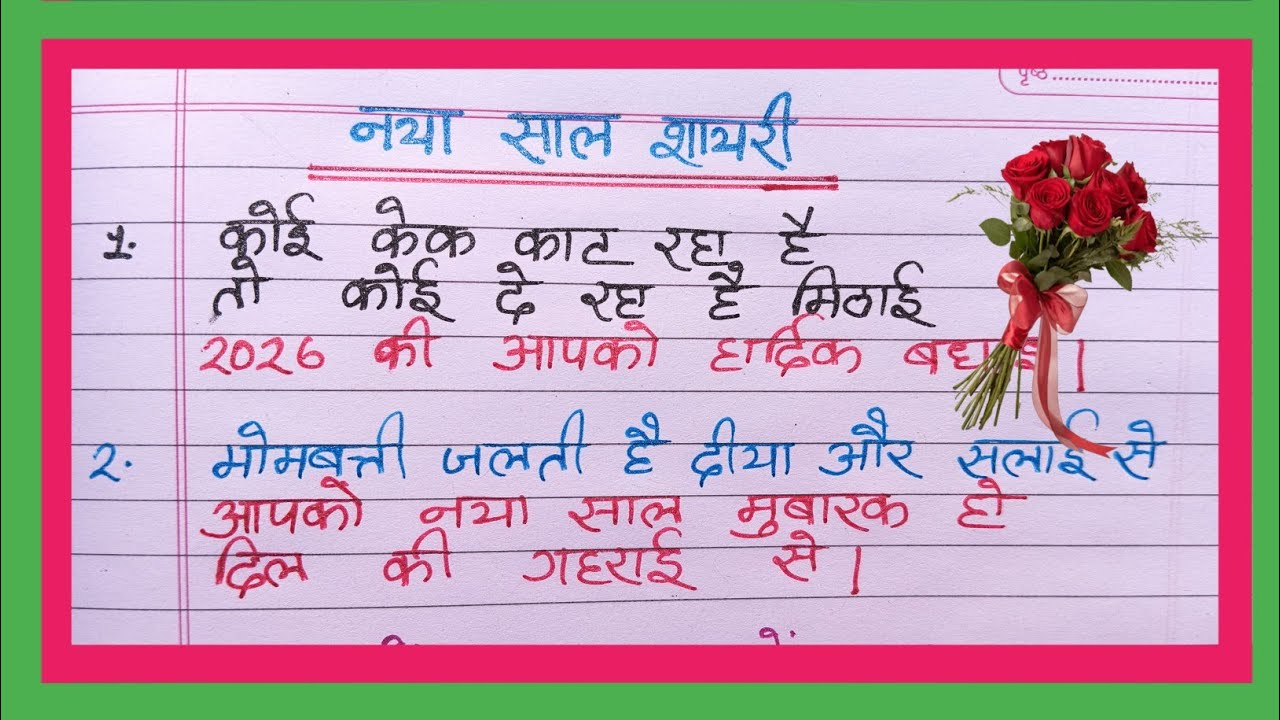 पृष्ठ
नया साल शायरी
1. कोई केक काट रहा है
तो कोई दे रहा है मिठाई
2026 की आपको हार्दिक बधाई।
२. मोमबत्ती जलती है दीया और सलाई से
आपको नया साल मुबारक हो
दिल की गहराई से।